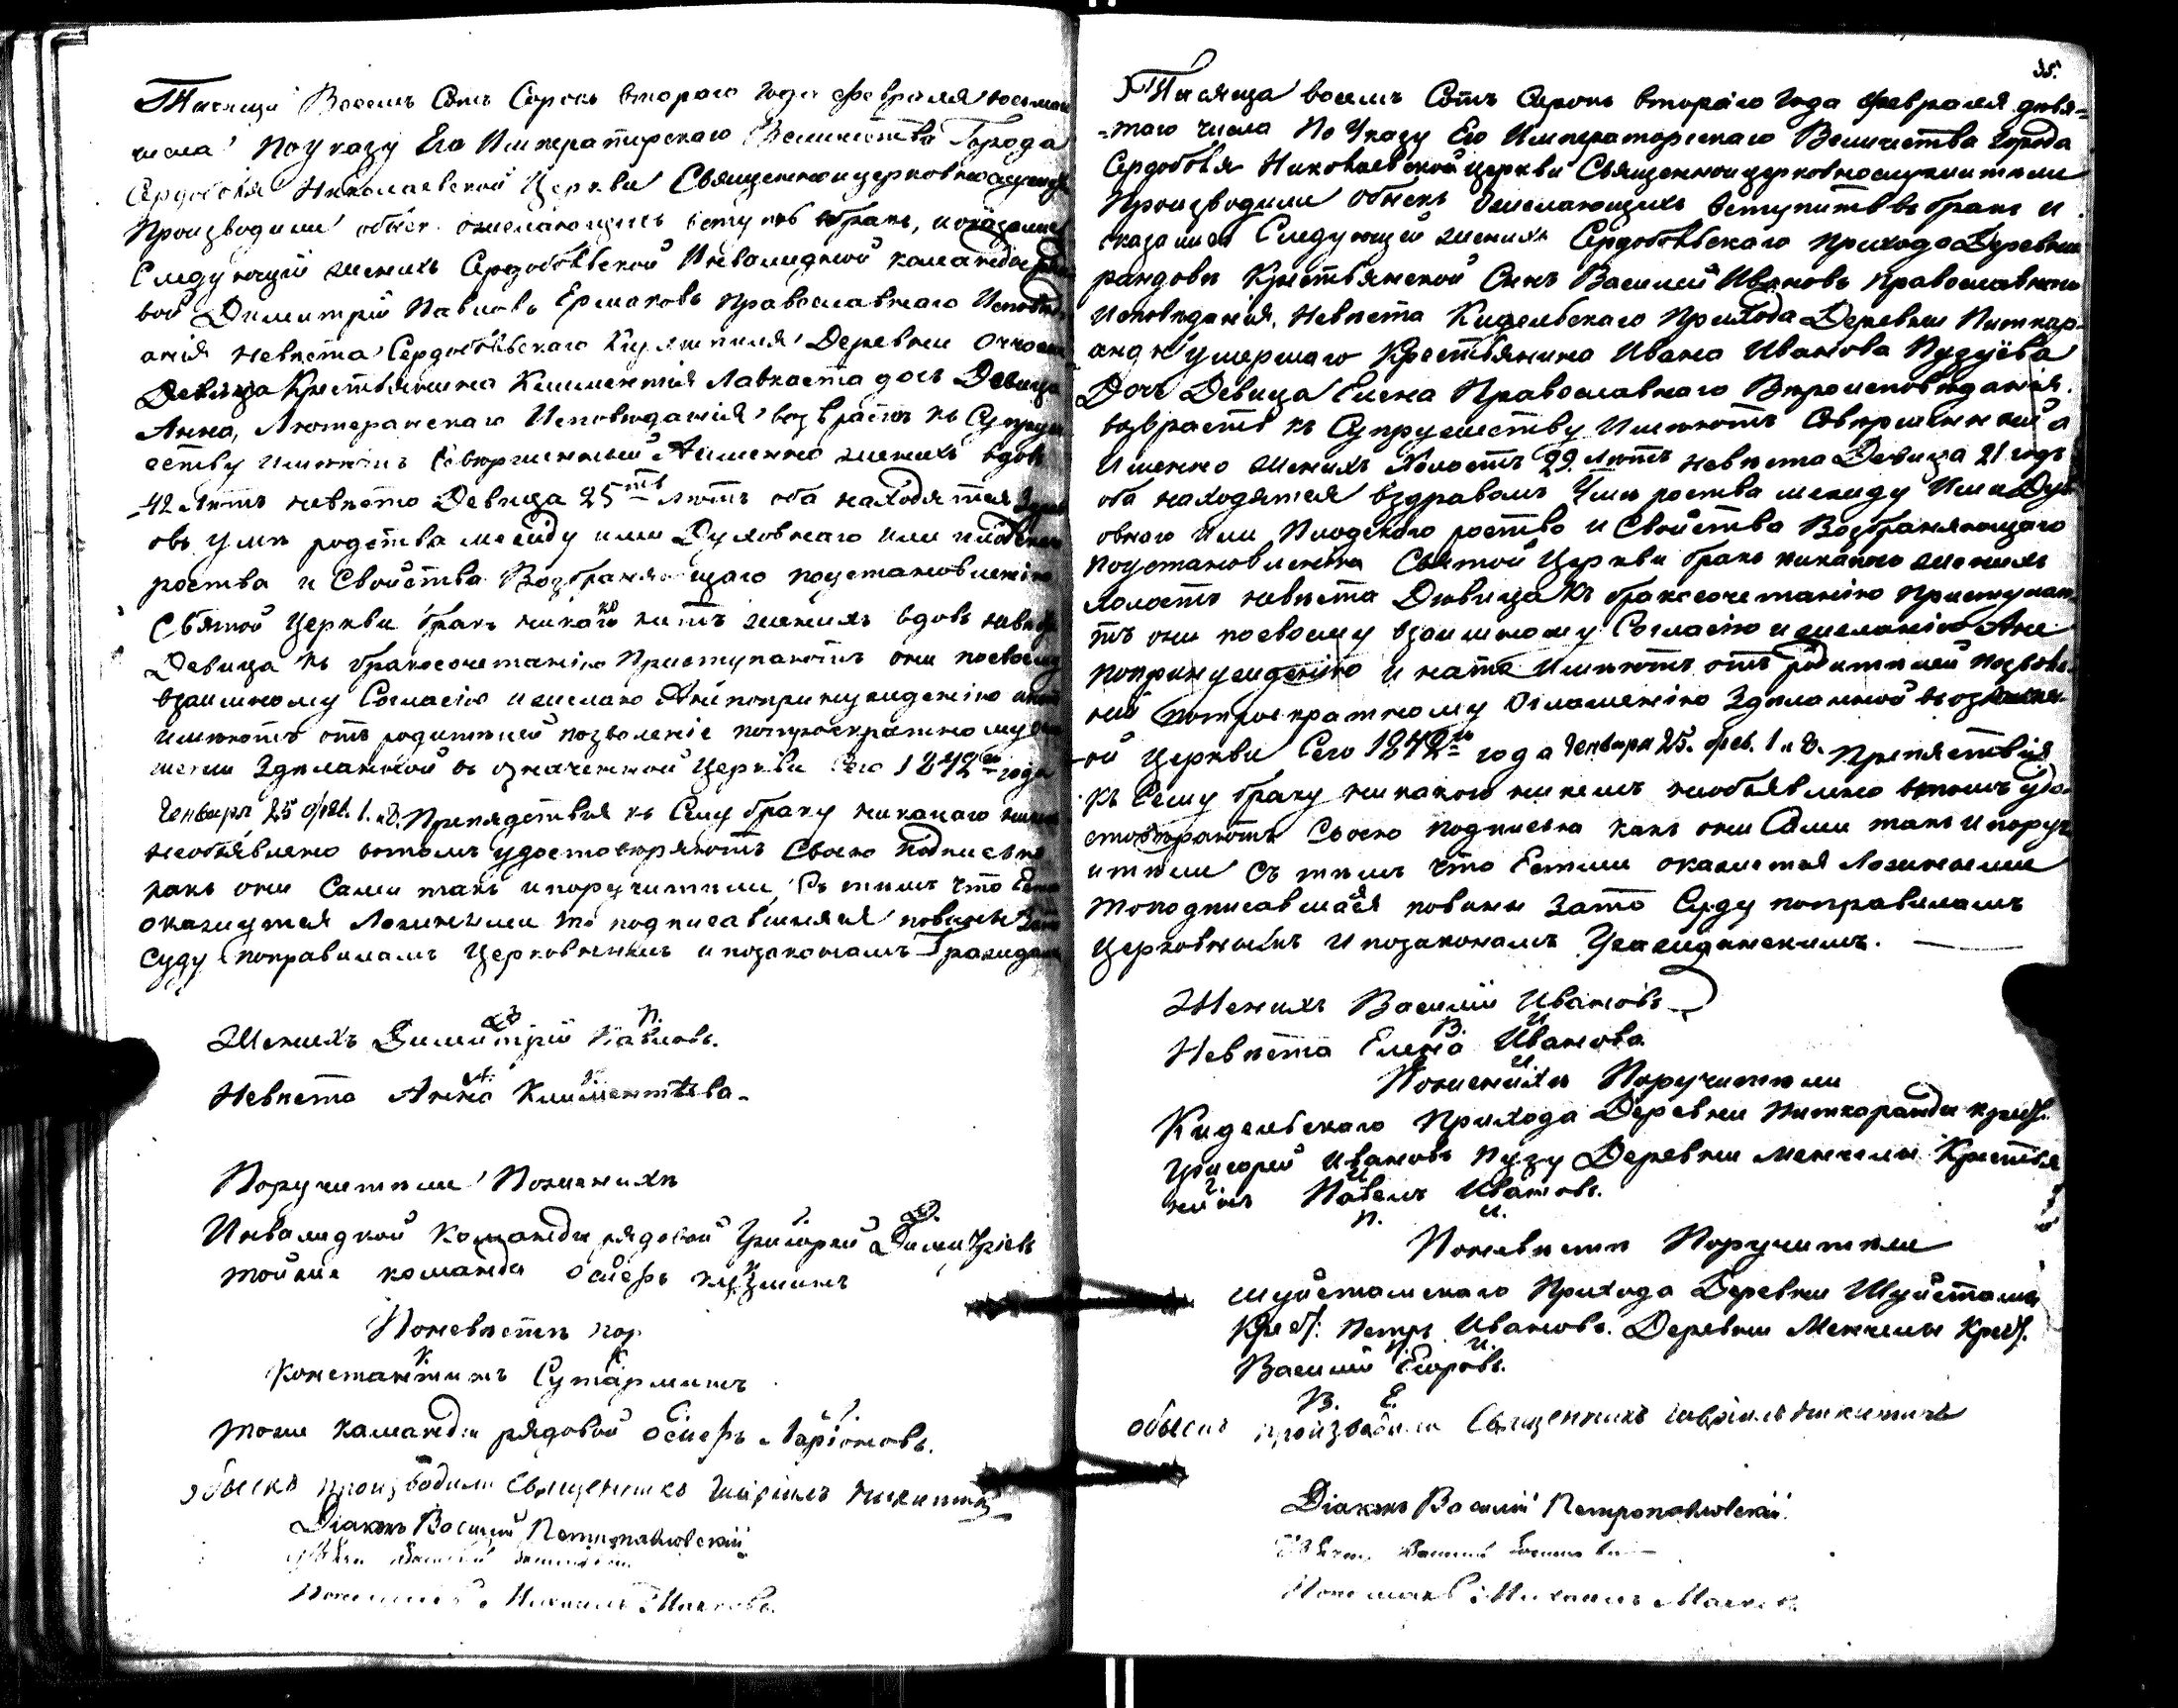 Тысяща Восемь Сотъ Сорокъ втораго года февраля восьмаго
числа По указу Его Императорскаго Величества Города
Сердоболя Николаевской Церкви Священноицерковнослужит
Производили обыск о желающихъ вступ въ бракъ, и оказалися
Следующій женихъ Сердобольской Инвалидной команды рядо
вой Димитрій Павловъ Ермаковъ православнаго Исповед
анія невѣста Сердобольскаго Деревни
Девица Крестьянина Климентія дочь Девица
Анна, Лютеранскаго Исповѣданія возрастъ къ Супруж
еству имѣютъ Совершенный Аименно женихъ вдовъ
-42 лѣтъ невѣста Девица 25ть лѣтъ оба находятся здрав
овъ умѣ родства между ими Духовнаго или плодскаго
роства и Свойства Возбраняющаго поустановленію
Святой Церкви бракъ никакого нѣтъ женихъ вдовъ невѣста
Девица къ бракосочетанію Приступаютъ они посвоему
взаимному Согласію и желаню Анепопринужденію и
имѣютъ отъ родителей позволеніе потроекратному
шенію Здѣланной въ означенной Церкви Сего 1842го года
Генваря 25 фев. 1. и 8. Препядствія къ Сему браку никакаго никемъ
необъявлено вотомъ удостоверяютъ Своею подписью
какъ они Сами такъ ипоручители, Съ темъ что Если
окажутся Ложными то подписавшияся повинны Зато
суду поправиламъ Церковнымъ и позаконамъ Граждан
Женихъ Димитрій Павловъ.
Невѣста Анна Климентьева.
Поручители Поженихѣ
Инвалидной Команды рядовой Григорей Димитріевъ
тойже команды Осиефъ Кузминъ
Поневѣстѣ пор.
Константинъ
тоже каманды рядовой Осиефъ Ларіоновъ.
обыскъ производили Священникъ Гавріилъ Никитинъ
Діаконъ Василій Петропавловскій
35.
Тысяща восемь Сотъ Сорокъ втораго года февраля девя-
-таго числа По Указу Его Императорскаго Величества города
Сердоболя Николаевской церкви Священноицерковнослужители
Производили обыскъ ожелающихъ вступить въ бракъ и
оказалися Следующей женихъ Сердобольскаго прихода Деревни
рандовы Крестьянской Сынъ Василей Ивановъ православнаго
Исповеданія. Невѣста Кидельскаго Прихода Деревни Питкар-
анды умершаго Крестьянина Ивана Иванова Пузуева
Дочь Девица Елена Православнаго Вероисповѣданія.
возрастъ къ Супружеству Имѣютъ Совершенный а
Именно женихъ Холостъ 29. Лѣтъ невѣста Девица 21 годъ
оба находятся вздравомъ Умѣ роства между Ими Дух
овнаго или Плодскаго роства и Свойства Возбраняющаго
поустановленію Святой Церкви бракъ никакого женихъ
холостъ невѣста Дѣвица Къ бракосочетанію приступаю
тъ они посвоему взаимному Согласію и желанію Ане
попринужденію и нато Имѣютъ отъ родителей позволе-
ній потроекратному Оглашенію Зделанной въ означен
-ой Церкви Сего 1842го года Генваря 25. фев. 1. и 8. Препятствія
къ Сему браку никакого никемъ необъявлено втомъ удо-
стоверяютъ Своею подписью какъ они Сами такъ ипоруч
ители Съ темъ что Естли окажется Ложными
топодписавшаяся повинны Зато Суду поправиламъ
Церковнымъ И позаконамъ Гражданскимъ.
Женихъ Василій Ивановъ
Невѣста Елена Иванова
Поженихѣ Поручители
Кидельскаго Прихода Деревни Питкаранды крест.
Григорей Ивановъ Пузу Деревни Крестья
нинъ Павелъ Ивановъ.
Поневѣстѣ Поручители
Шуйстамскаго Прихода Деревни Шуйстамы
Крест: Петръ Ивановъ. Деревни Крест.
Василій Егоровъ.
обыскъ производили Священникъ Гавріилъ Никитинъ
Діаконъ Василій Петропавловскій.